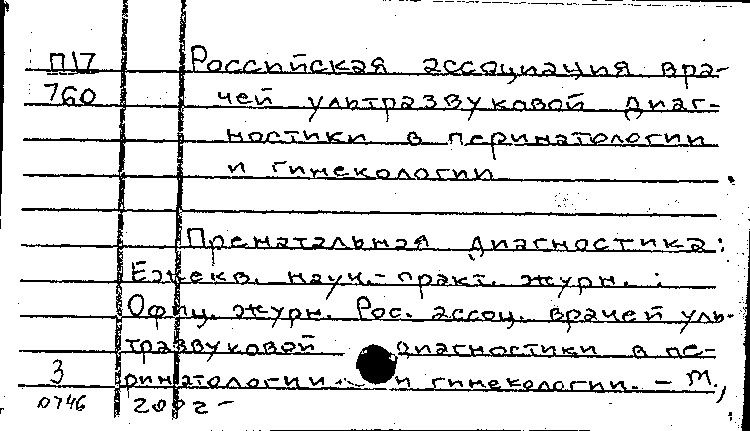 П17 Российская ассоциация вра-
760 чей ультразвуковой диаг-
ностики в перинатологии
и гинекологии
Пренатальная диагностика:
Ежекв. науч.-практ. журн. :
Офиц. журн. Рос. ассоц. врачей уль-
тразвуковой диагностики в пе-
3 ринатологии и гинекологии. - М.,
0746 2002-